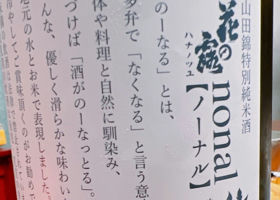 山田錦特別純米酒
花の露
ハナノツユ
nonal【ノーナル】
のーなる」とは、
多弁で「なくなる」と言う意
体や料理と自然に馴染み、
づけば「酒がのーなっとる」。
んな、優しく滑らかな味わい
地元の水とお米で表現しました。
やしてご賞味頂くのがお勧めで